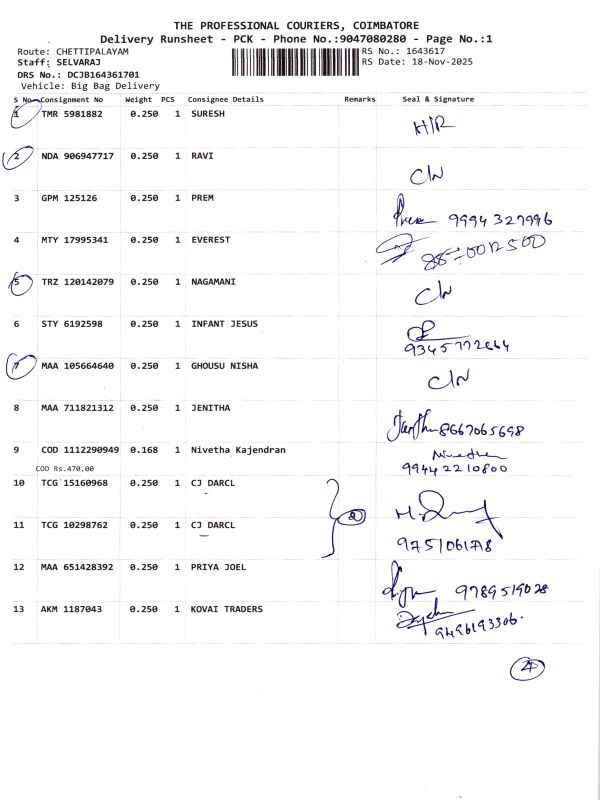 THE PROFESSIONAL COURIERS, COIMBATORE
Delivery Runsheet - PCK - Phone No.:9047080280 - Page No.:1
Route: CHETTIPALAYAM RS No.: 1643617
Staff: SELVARAJ RS Date: 18-Nov-2025
DRS No.: DCJB164361701
Vehicle: Big Bag Delivery
S No Consignment No Weight PCS Consignee Details Remarks Seal & Signature
1 TMR 5981882 0.250 1 SURESH
2 NDA 906947717 0.250 1 RAVI
C/N
3 GPM 125126 0.250 1 PREM
9994327996
4 MTY 17995341 0.250 1 EVEREST
5 TRZ 120142079 0.250 1 NAGAMANI
C/N
6 STY 6192598 0.250 1 INFANT JESUS
7 MAA 105664640 0.250 1 GHOUSU NISHA
C/N
8 MAA 711821312 0.250 1 JENITHA
8667065698
9 COD 1112290949 0.168 1 Nivetha Kajendran
COD Rs.470.00
10 TCG 15160968 0.250 1 CJ DARCL
2
11 TCG 10298762 0.250 1 CJ DARCL
12 MAA 651428392 0.250 1 PRIYA JOEL
9789519028
13 AKM 1187043 0.250 1 KOVAI TRADERS
4